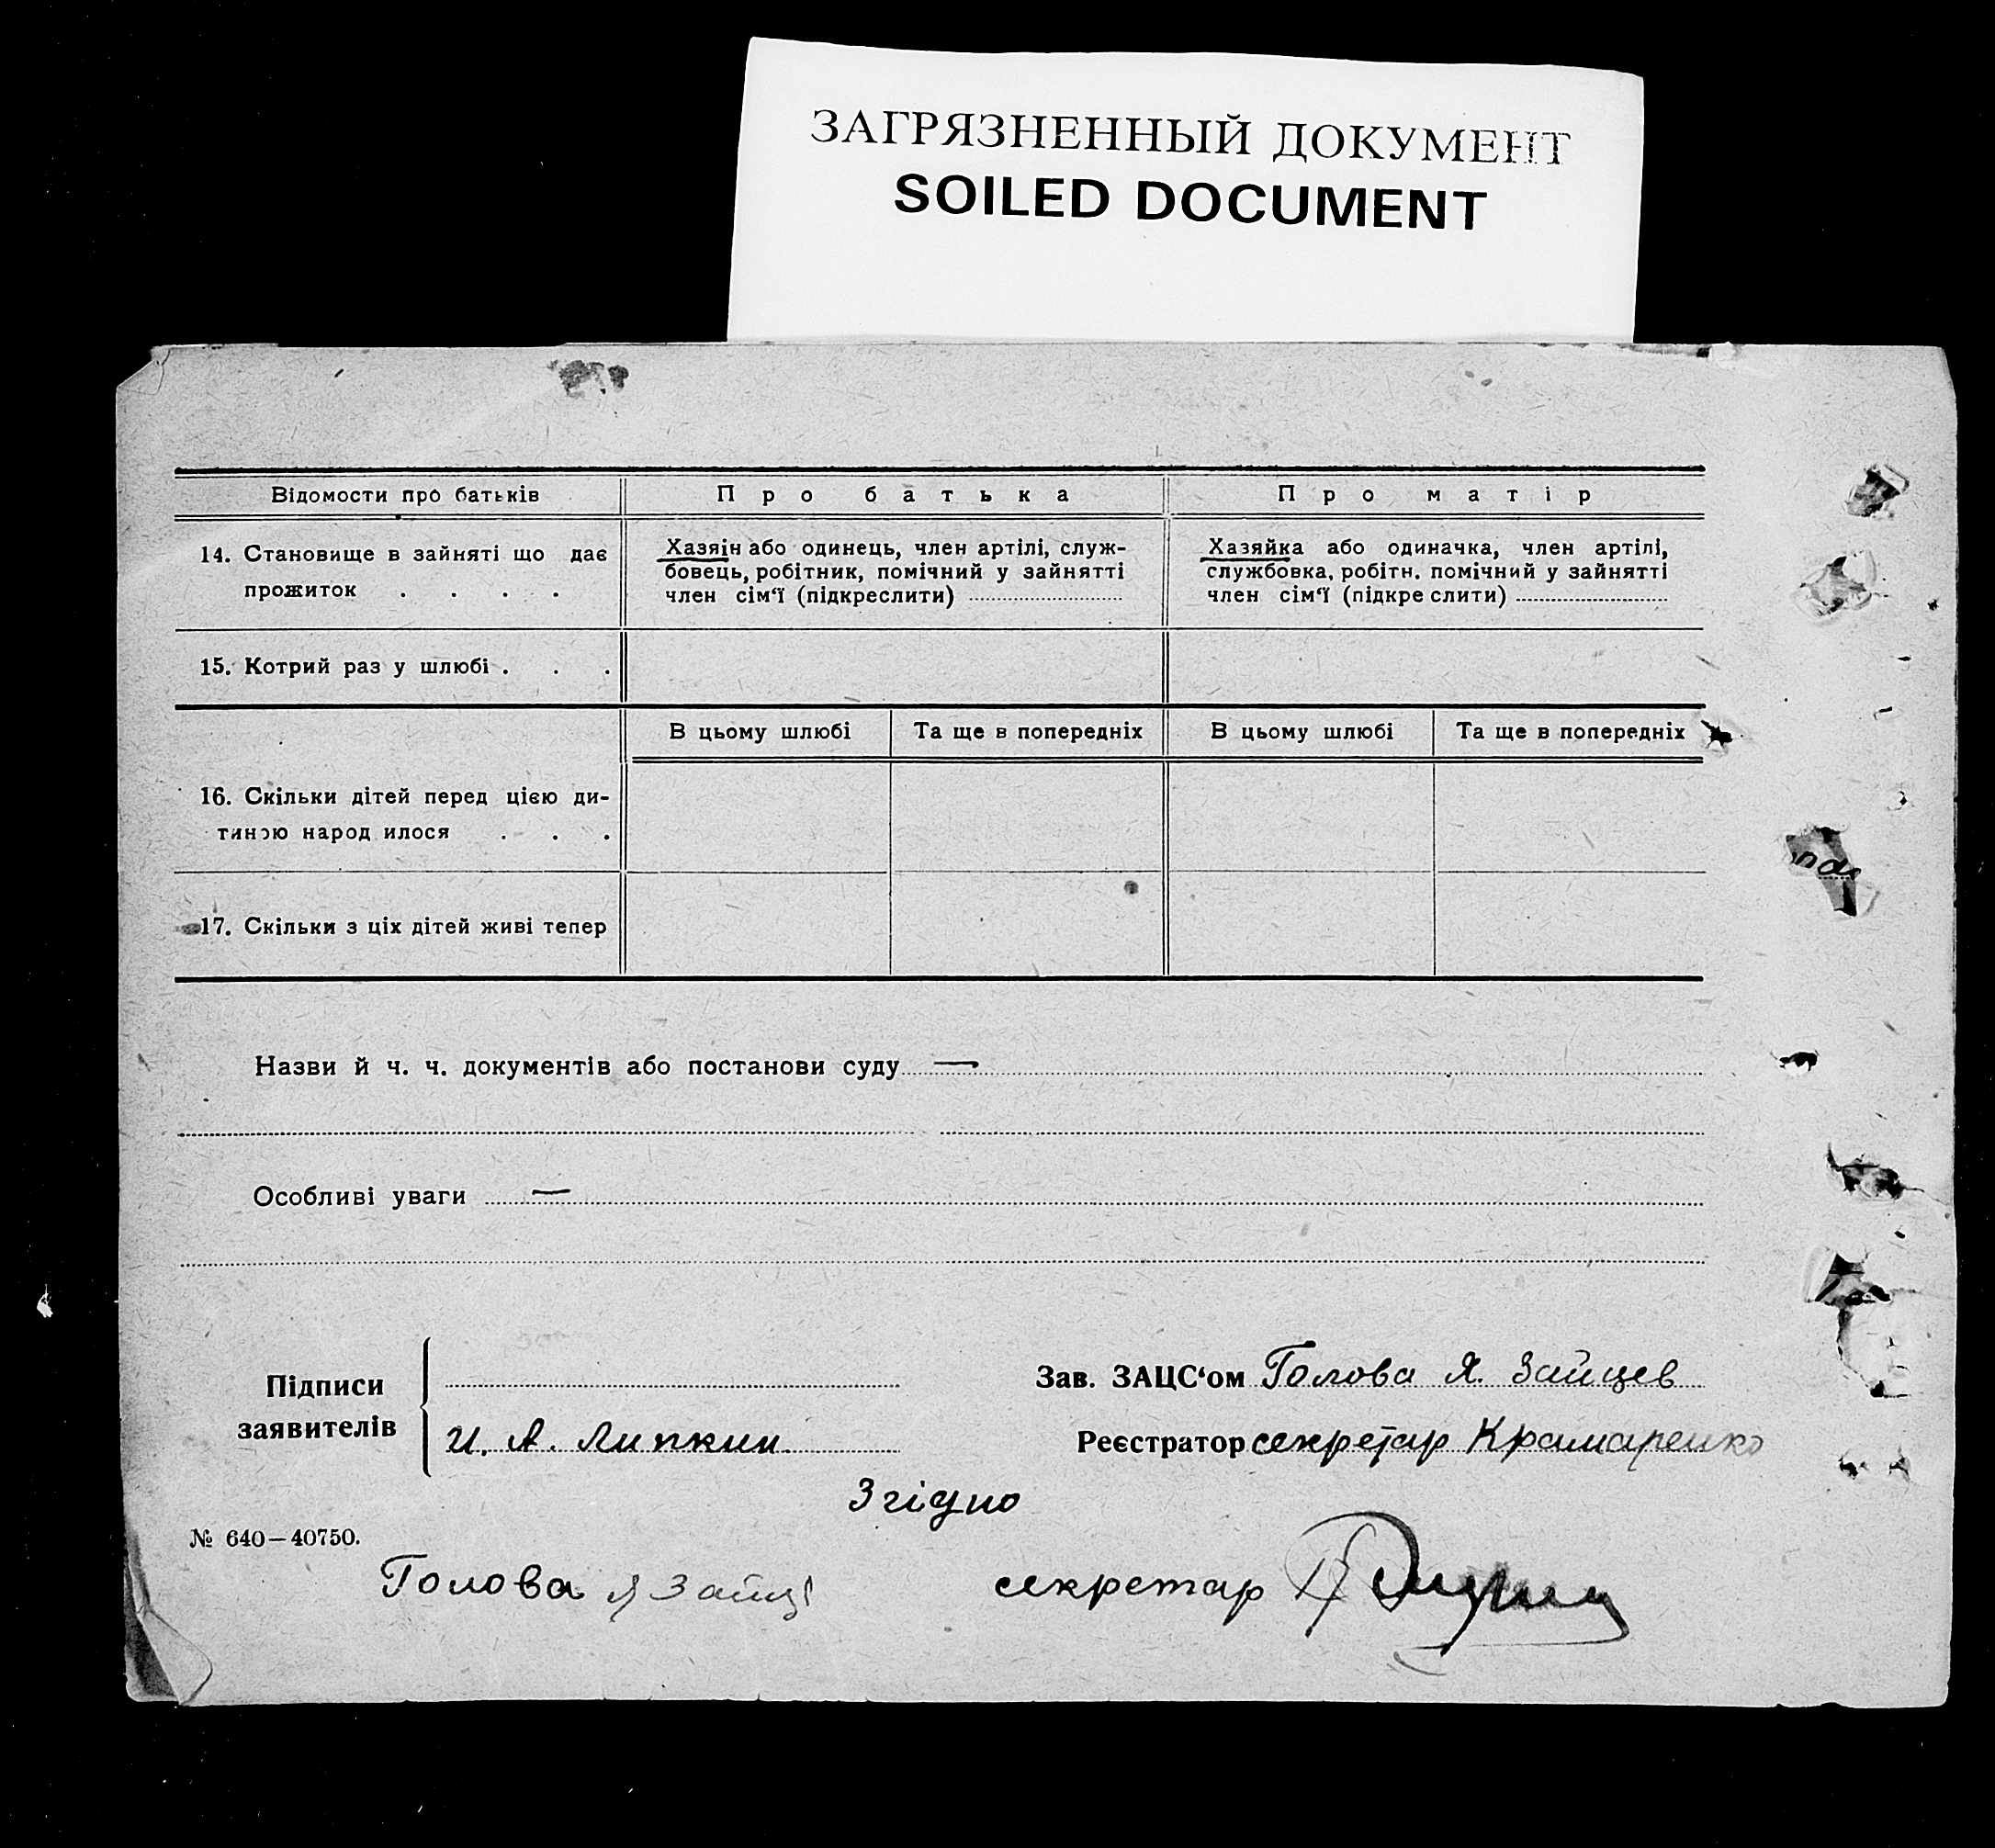 ЗАГРЯЗНЕННЫЙ ДОКУМЕНТ
SOILED DOCUMENT
Відомости про батьків
Про батька
Про матір
14. Становище в зайняті що дає
прожиток . . . .
Хазяїн або одинець, член артілі, служ-
бовець, робітник, помічний у зайнятті
член сім‘ї (підкреслити)
Хазяйка або одиначка, член артілі,
службовка, робітн. помічний у зайнятті
член сім‘ї (підкре слити)
15. Котрий раз у шлюбі . . .
В цьому шлюбі
Та ще в попередніх
В цьому шлюбі
Та ще в попередніх
16. Скільки дітей перед цією ди-
тиною народ илося . . .
17. Скільки з ціх дітей живі тепер
Назви й ч. ч. документів або постанови суду —
Особливі уваги —
Підписи
заявителів
И. А. Липкин
Зав. ЗАЦС‘ом Голова Я. Зайцев
Реєстратор секретар Крамаренко
Згідно
№ 640—40750.
Голова Я Зайц
секретар